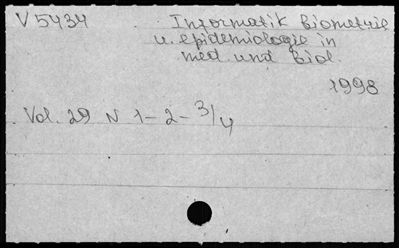 V 5434 Informatik Biometrie
u. epidemiologie in
med und Biol.
1998
Vol. 29 N 1-2-3/4